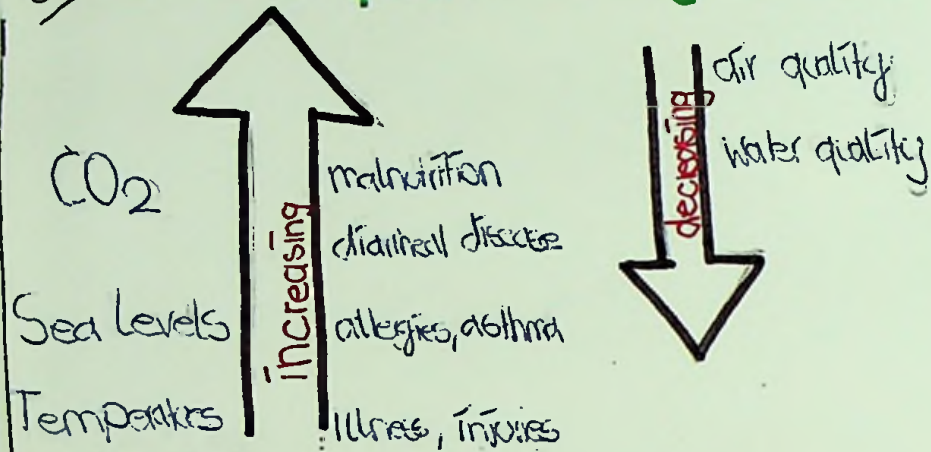 CO2
Sea Levels
Temperatures
increasing
malnutrition
diarrheal disease
allergies, asthma
Illness, injuries
decreasing
air quality
water quality